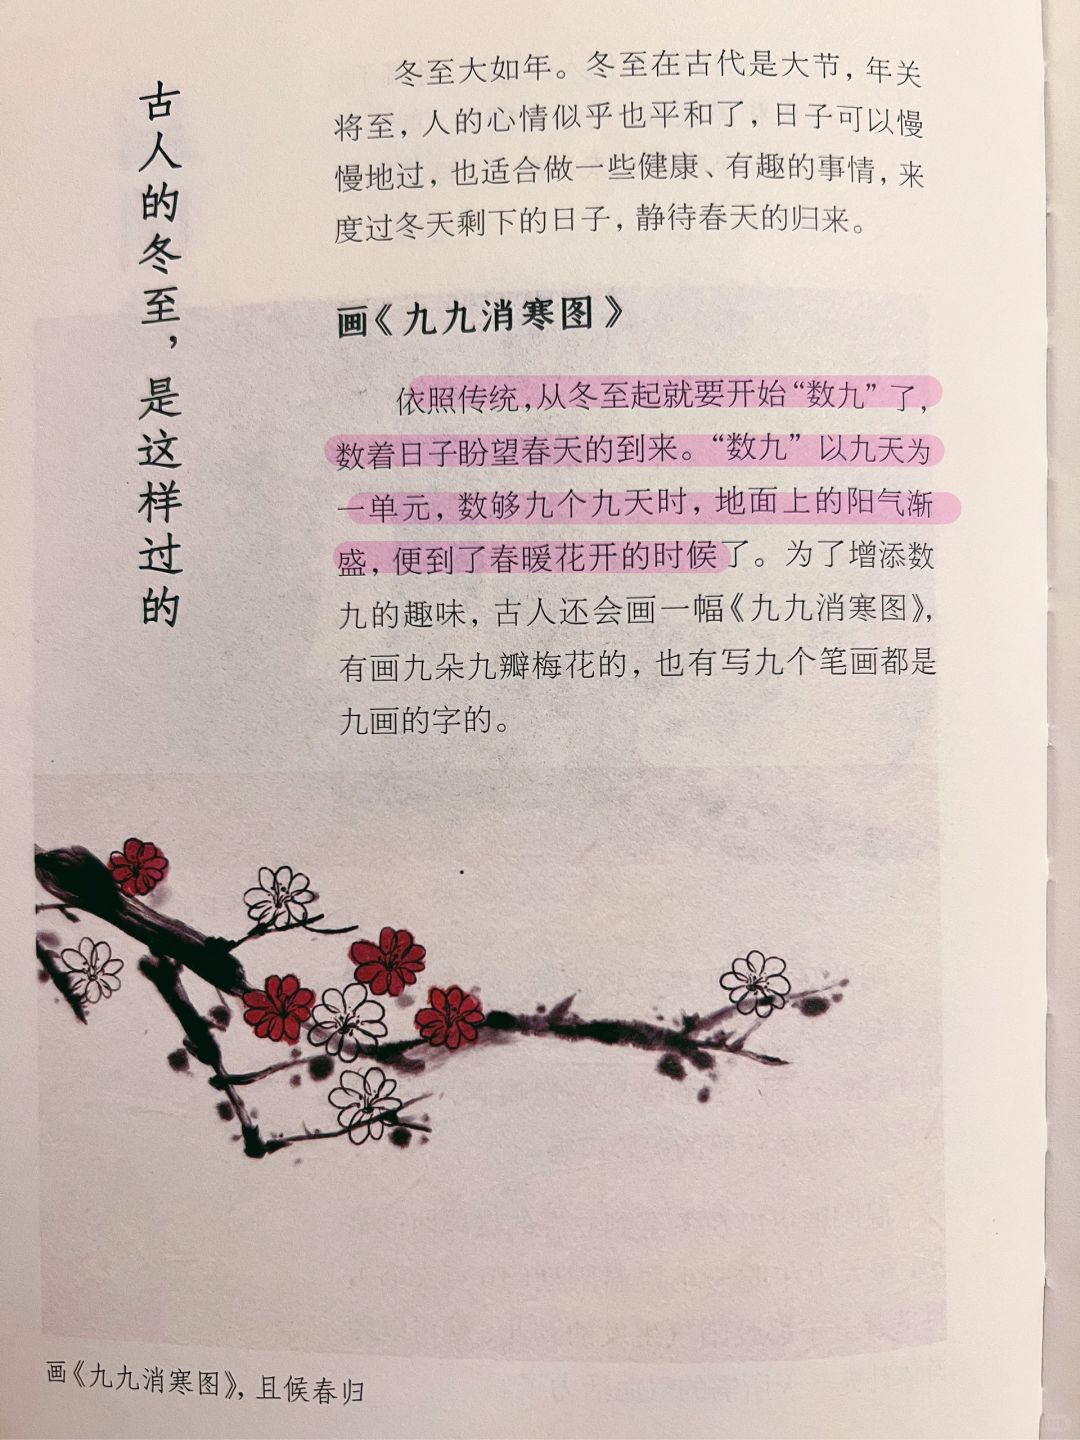 古人的冬至，是这样过的
冬至大如年。冬至在古代是大节，年关
将至，人的心情似乎也平和了，日子可以慢
慢地过，也适合做一些健康、有趣的事情，来
度过冬天剩下的日子，静待春天的归来。
画《九九消寒图》
依照传统，从冬至起就要开始“数九”了，
数着日子盼望春天的到来。“数九”以九天为
一单元，数够九个九天时，地面上的阳气渐
盛，便到了春暖花开的时候了。为了增添数
九的趣味，古人还会画一幅《九九消寒图》，
有画九朵九瓣梅花的，也有写九个笔画都是
九画的字的。
画《九九消寒图》，且候春归